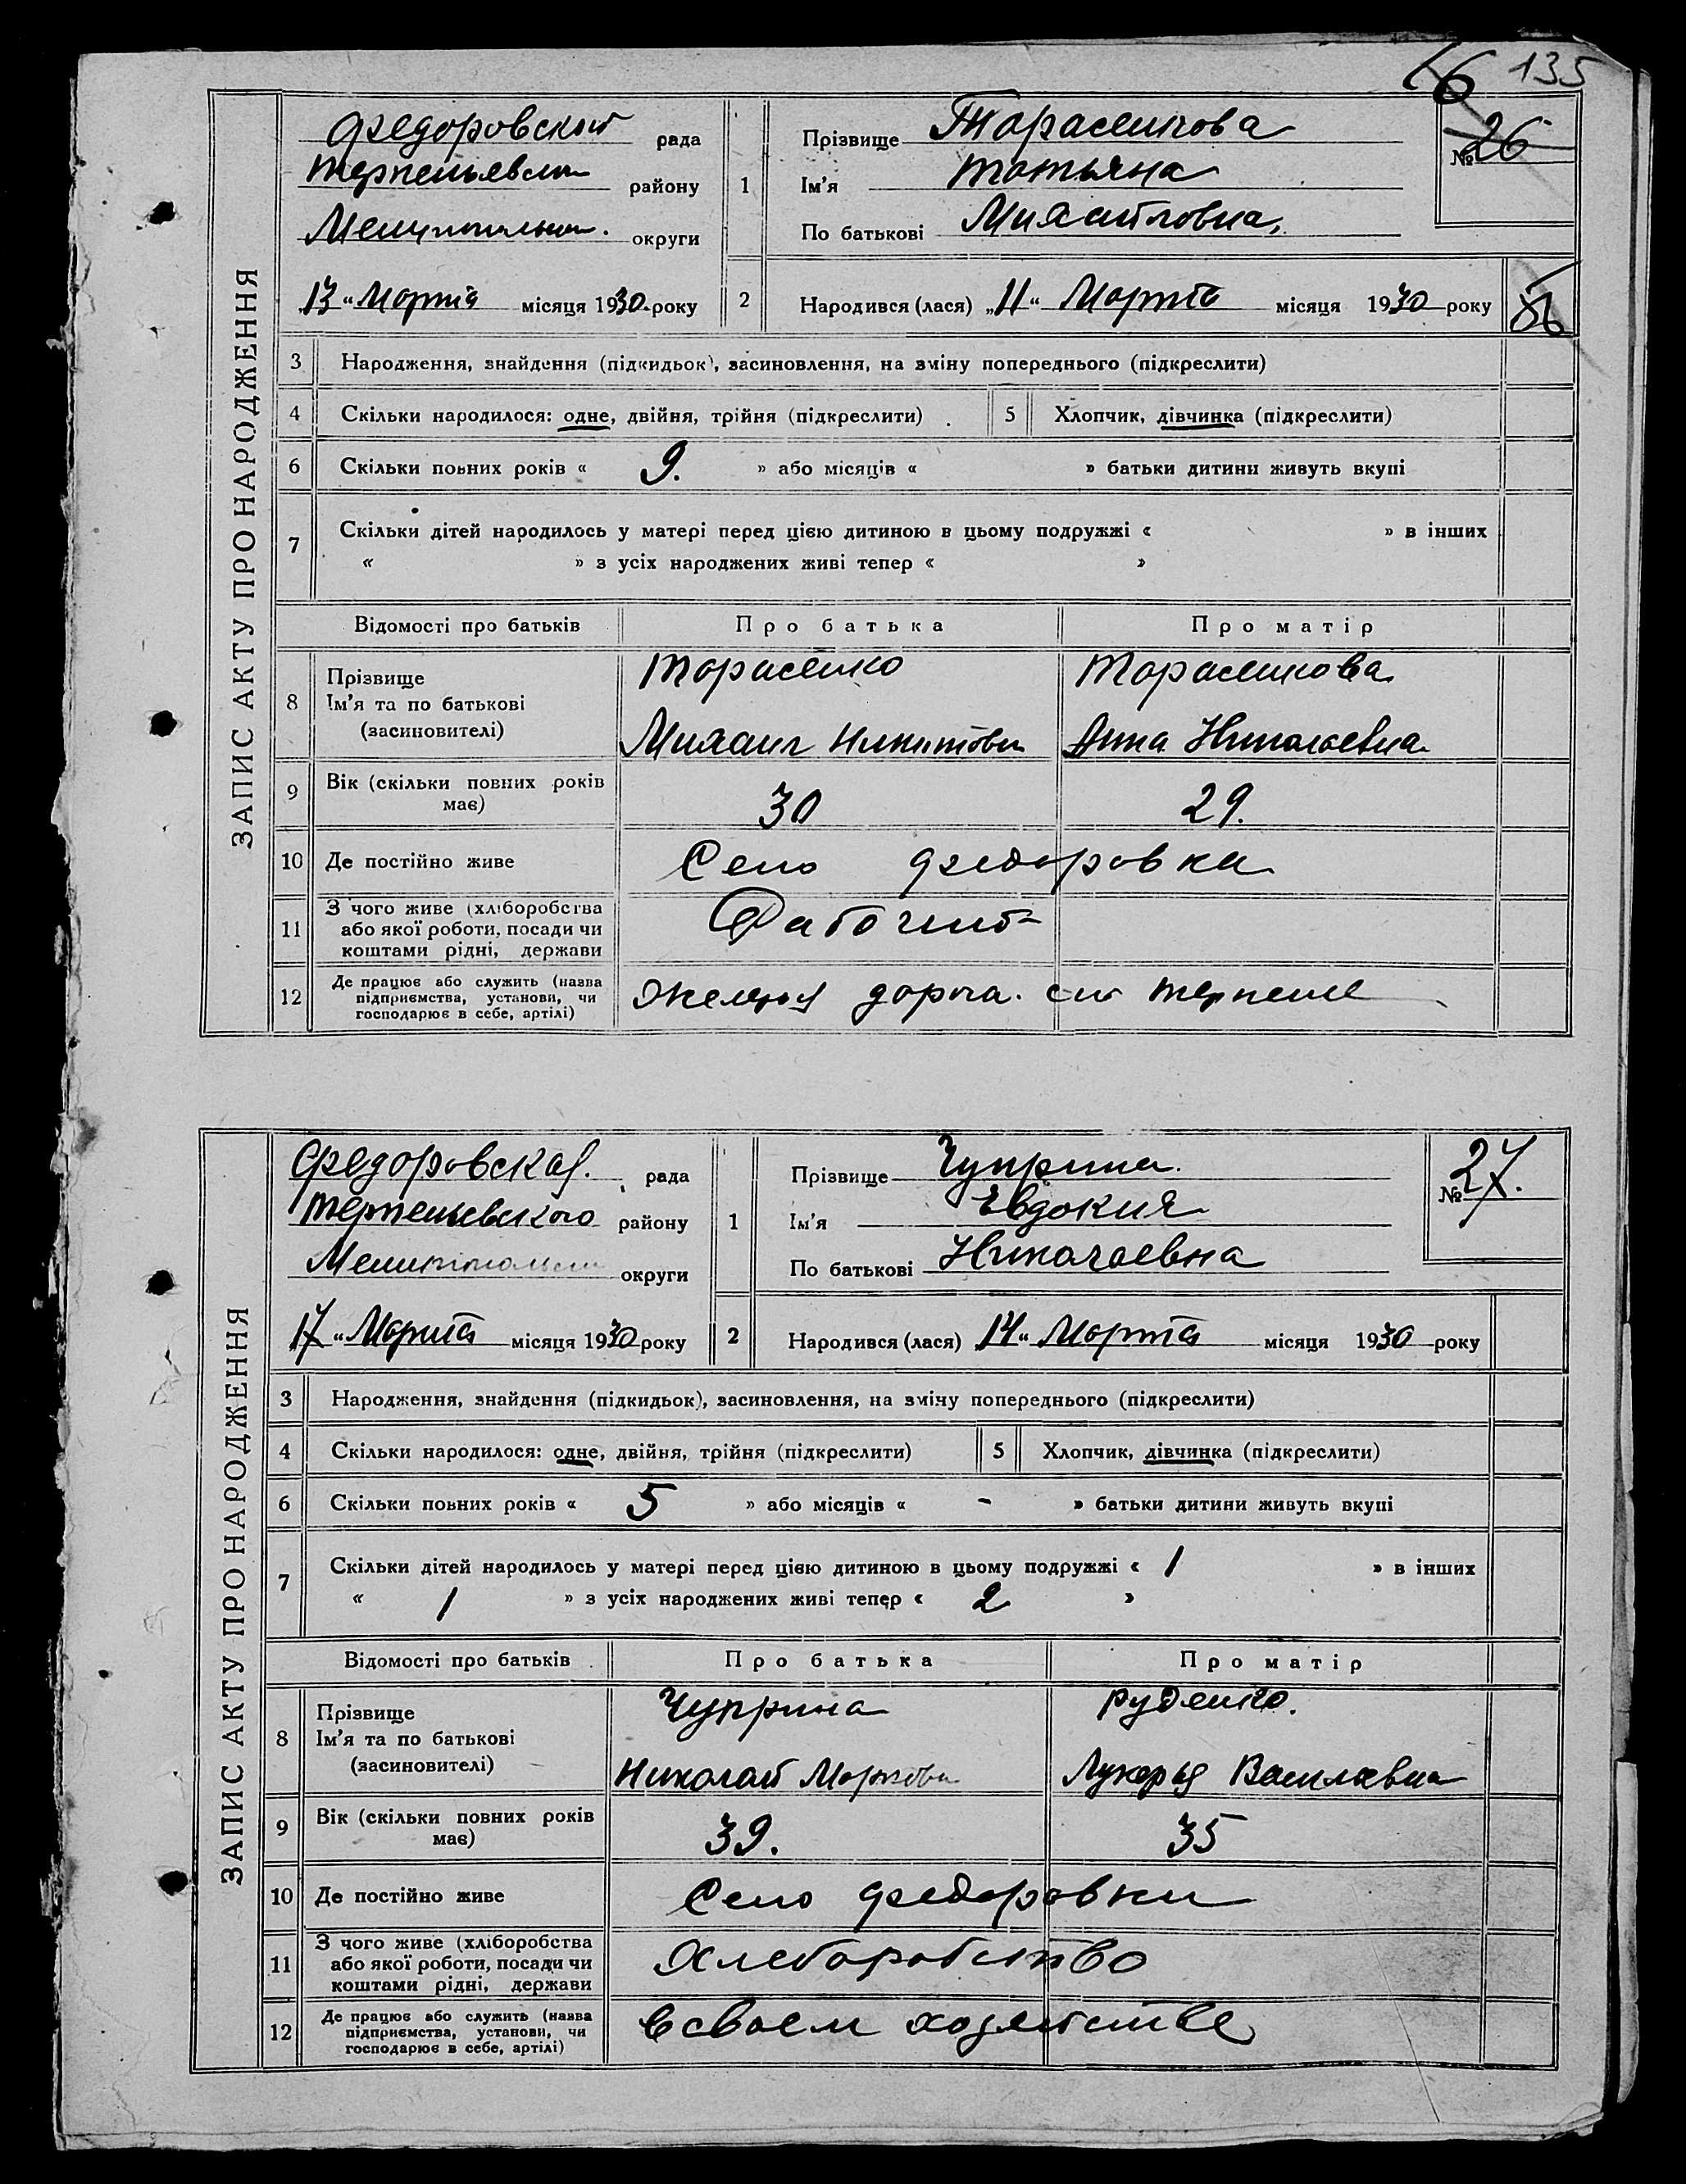 135
ЗАПИС АКТУ ПРО НАРОДЖЕННЯ
Федоровской рада
Терпеньевском району
Мелитопольской округи
13 „ Марта місяця 1930 року
1 Прізвище Тарасенкова
Ім'я Татьяна
По батькові Михайловна
№ 26
2 Народився (лася) „11“ Марта місяця 1930 року
3 Народження, знайдення (підкидьок), засиновлення, на зміну попереднього (підкреслити)
4 Скільки народилося: одне, двійня, трійня (підкреслити) 5 Хлопчик, дівчинка (підкреслити)
6 Скільки повних років « 9. » або місяців « » батьки дитини живуть вкупі
7 Скільки дітей народилось у матері перед цією дитиною в цьому подружжі « » в інших
« » з усіх народжених живі тепер « »
Відомості про батьків Про батька Про матір
8 Прізвище Тарасенко Тарасенкова
Ім'я та по батькові
(засновителі) Михаил Никитович Анна Николаевна
9 Вік (скільки повних років має) 30 29.
10 Де постійно живе Село Федоровка
11 З чого живе (хліборобства або якої роботи, посади чи коштами рідні, держави Рабочий
12 Де працює або служить (назва підприємства, установи, чи господарює в себе, артілі) дорога. Терпение
ЗАПИС АКТУ ПРО НАРОДЖЕННЯ
Федоровская. рада
Терпеньевского району
Мелитопольской округи
17 „ Марта місяця 1930 року
1 Прізвище Чуприна.
Ім'я Евдокия
По батькові Николаевна
№ 27.
2 Народився (лася) 14 „ Марта місяця 1930 року
3 Народження, знайдення (підкидьок), засиновлення, на зміну попереднього (підкреслити)
4 Скільки народилося: одне, двійня, трійня (підкреслити) 5 Хлопчик, дівчинка (підкреслити)
6 Скільки повних років « 5 » або місяців « - » батьки дитини живуть вкупі
7 Скільки дітей народилось у матері перед цією дитиною в цьому подружжі « 1 » в інших
« 1 » з усіх народжених живі тепер « 2 »
Відомості про батьків Про батька Про матір
8 Прізвище Чуприна Руденко.
Ім'я та по батькові
(засиновителі) Николай Маркович Лукерья Василевна
9 Вік (скільки повних років має) 39. 35
10 Де постійно живе Село Федоровки
11 З чого живе (хліборобства або якої роботи, посади чи коштами рідні, держави Хлеборобство
12 Де працює або служить (назва підприємства, установи, чи господарює в себе, артілі) в своем хозяйстве